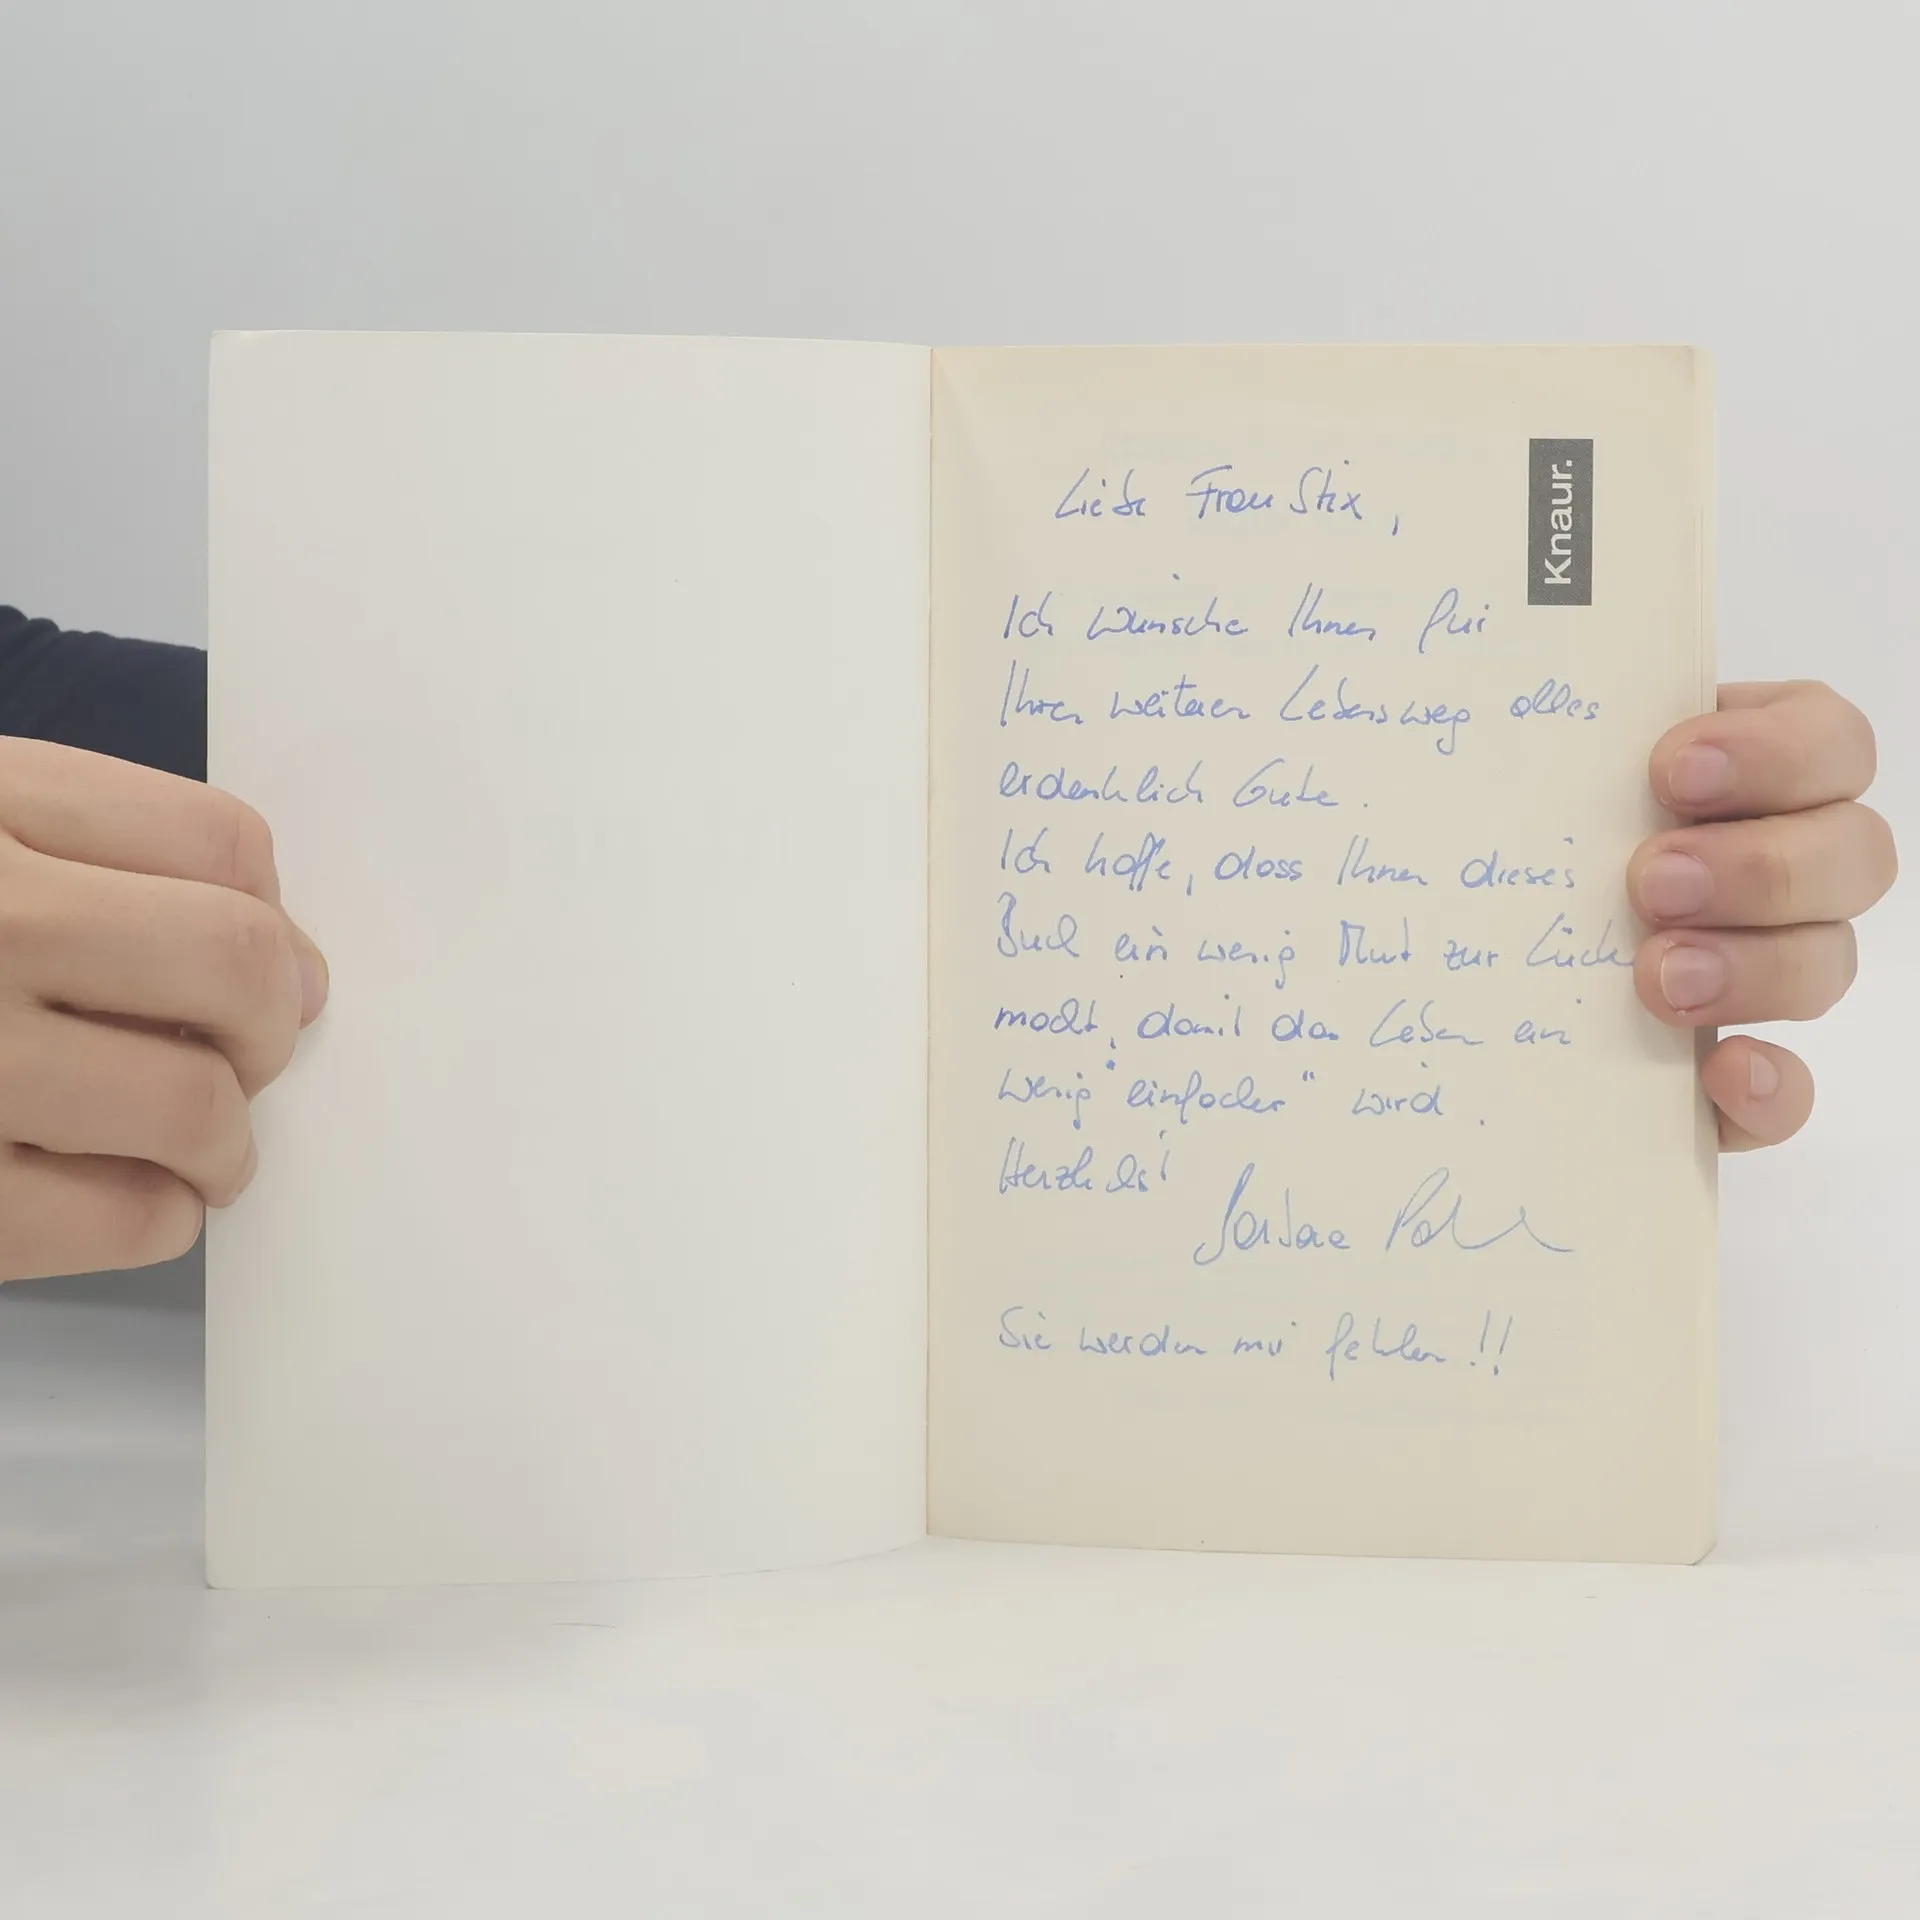 Knaur.
Liebe Frau Stix,
Ich wünsche Ihnen für
Ihren weiteren Lebensweg alles
erdenklich Gute.
Ich hoffe, dass Ihnen dieses
Buch ein wenig Mut zur Lücke
macht, damit das Leben ein
wenig "einfacher" wird.
Herzlichst
Barbara
Sie werden mir fehlen!!